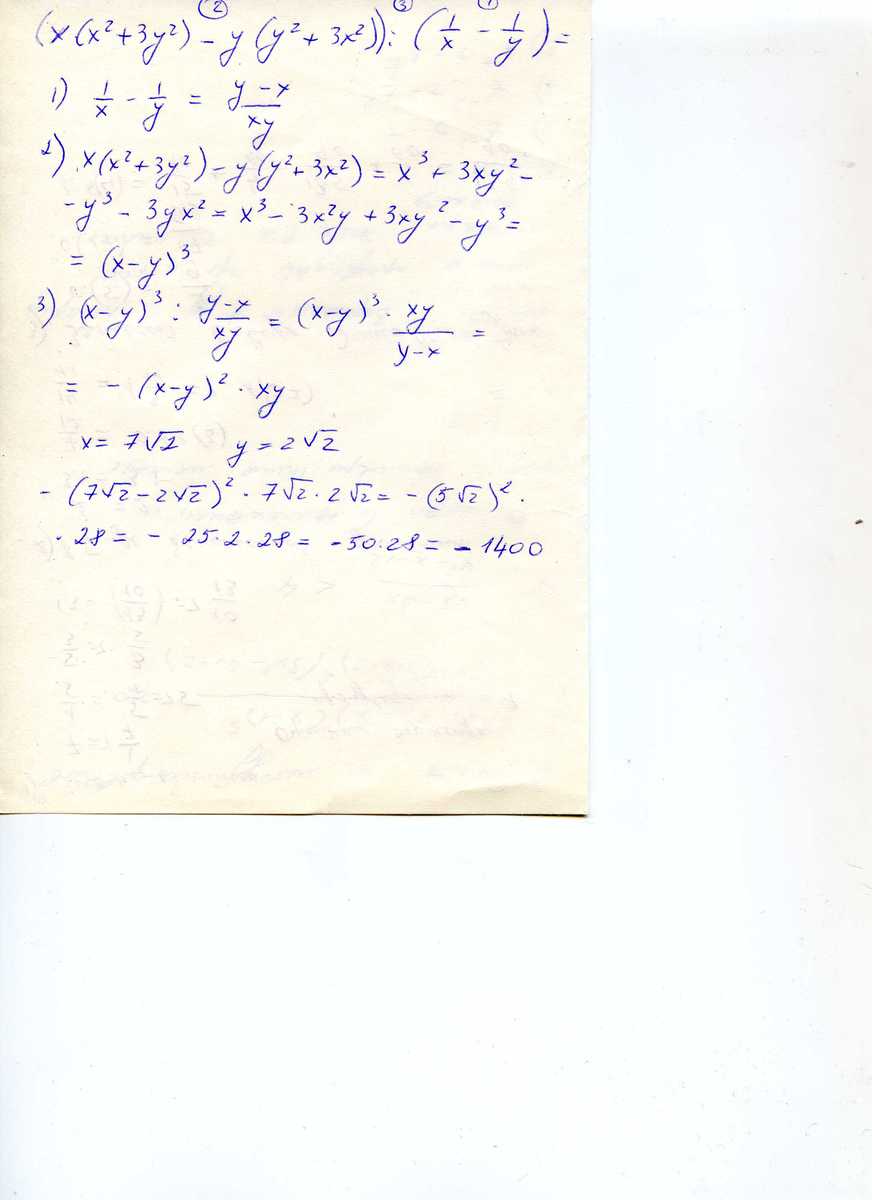 ② ③ ①
(x(x²+3y²) - y(y²+3x²)) : (1/x - 1/y) =
1) 1/x - 1/y = y-x/xy
2) x(x²+3y²) - y(y²+3x²) = x³ + 3xy² -
- y³ - 3yx² = x³ - 3x²y + 3xy² - y³ =
= (x-y)³
3) (x-y)³ : y-x/xy = (x-y)³ · xy/y-x =
= - (x-y)² · xy
x = 7√2 y = 2√2
- (7√2 - 2√2)² · 7√2 · 2√2 = - (5√2)² ·
· 28 = - 25·2·28 = -50·28 = -1400